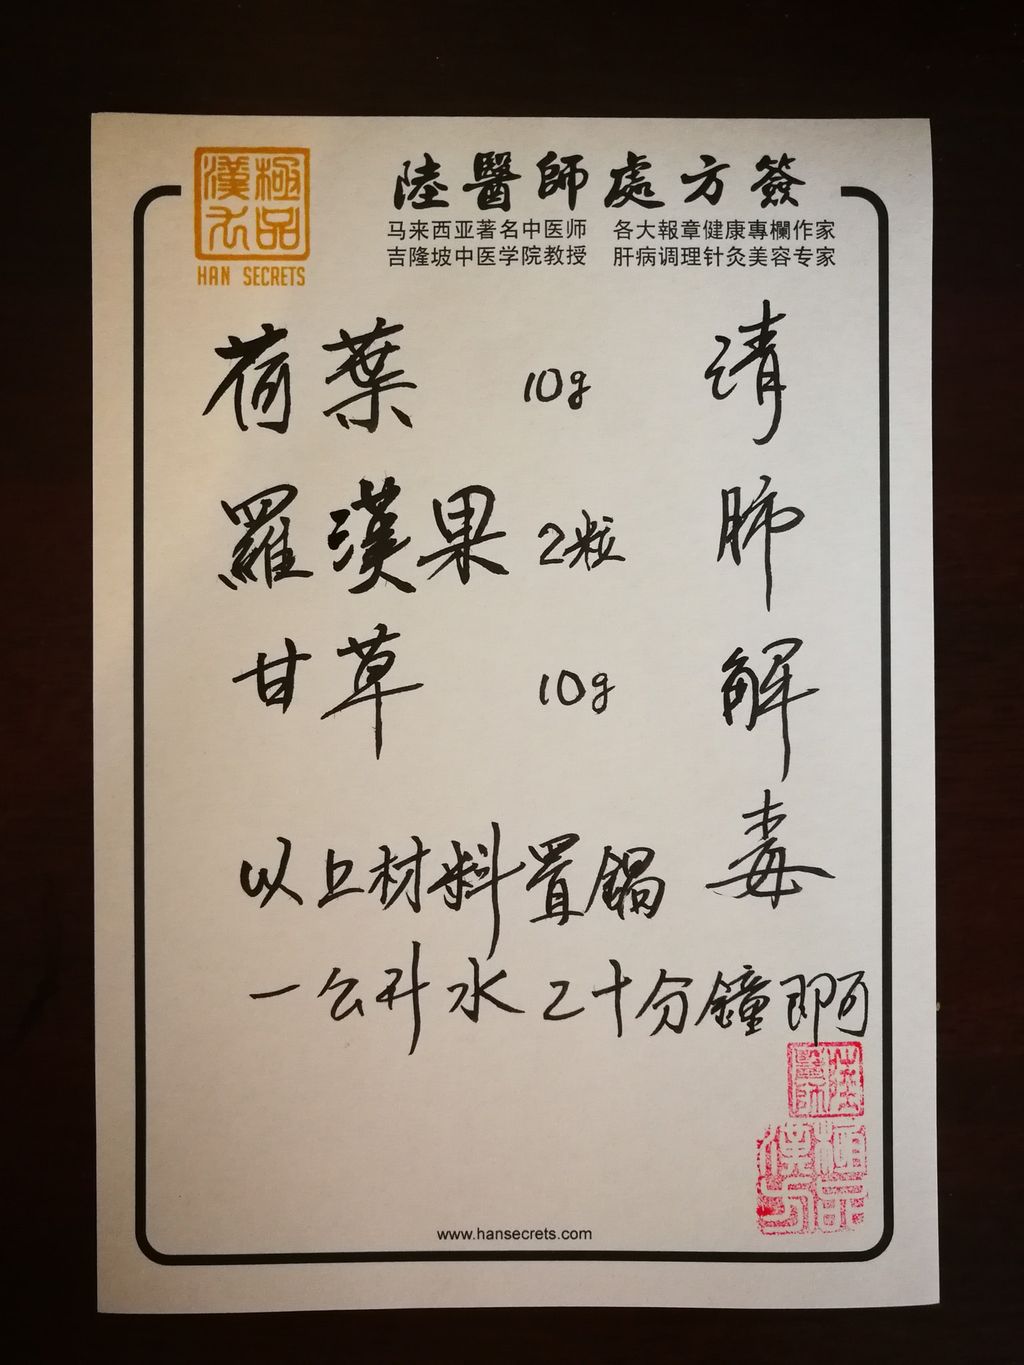 極品
漢方
HAN SECRETS
陸醫師處方簽
马来西亚著名中医师 各大報章健康專欄作家
吉隆坡中医学院教授 肝病调理针灸美容专家
荷葉 10g
羅漢果 2粒
甘草 10g
以上材料置鍋
一公升水二十分鐘即可
清肺解毒
陸醫師
極品
漢方
www.hansecrets.com